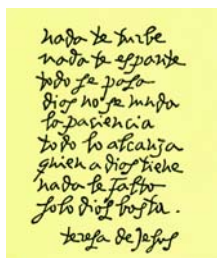 nada te turbe
nada te espante
todo se pasa
dios no se muda
la paciencia
todo lo alcanza
quien a dios tiene
nada le falta
solo dios basta.
teresa de Jesus